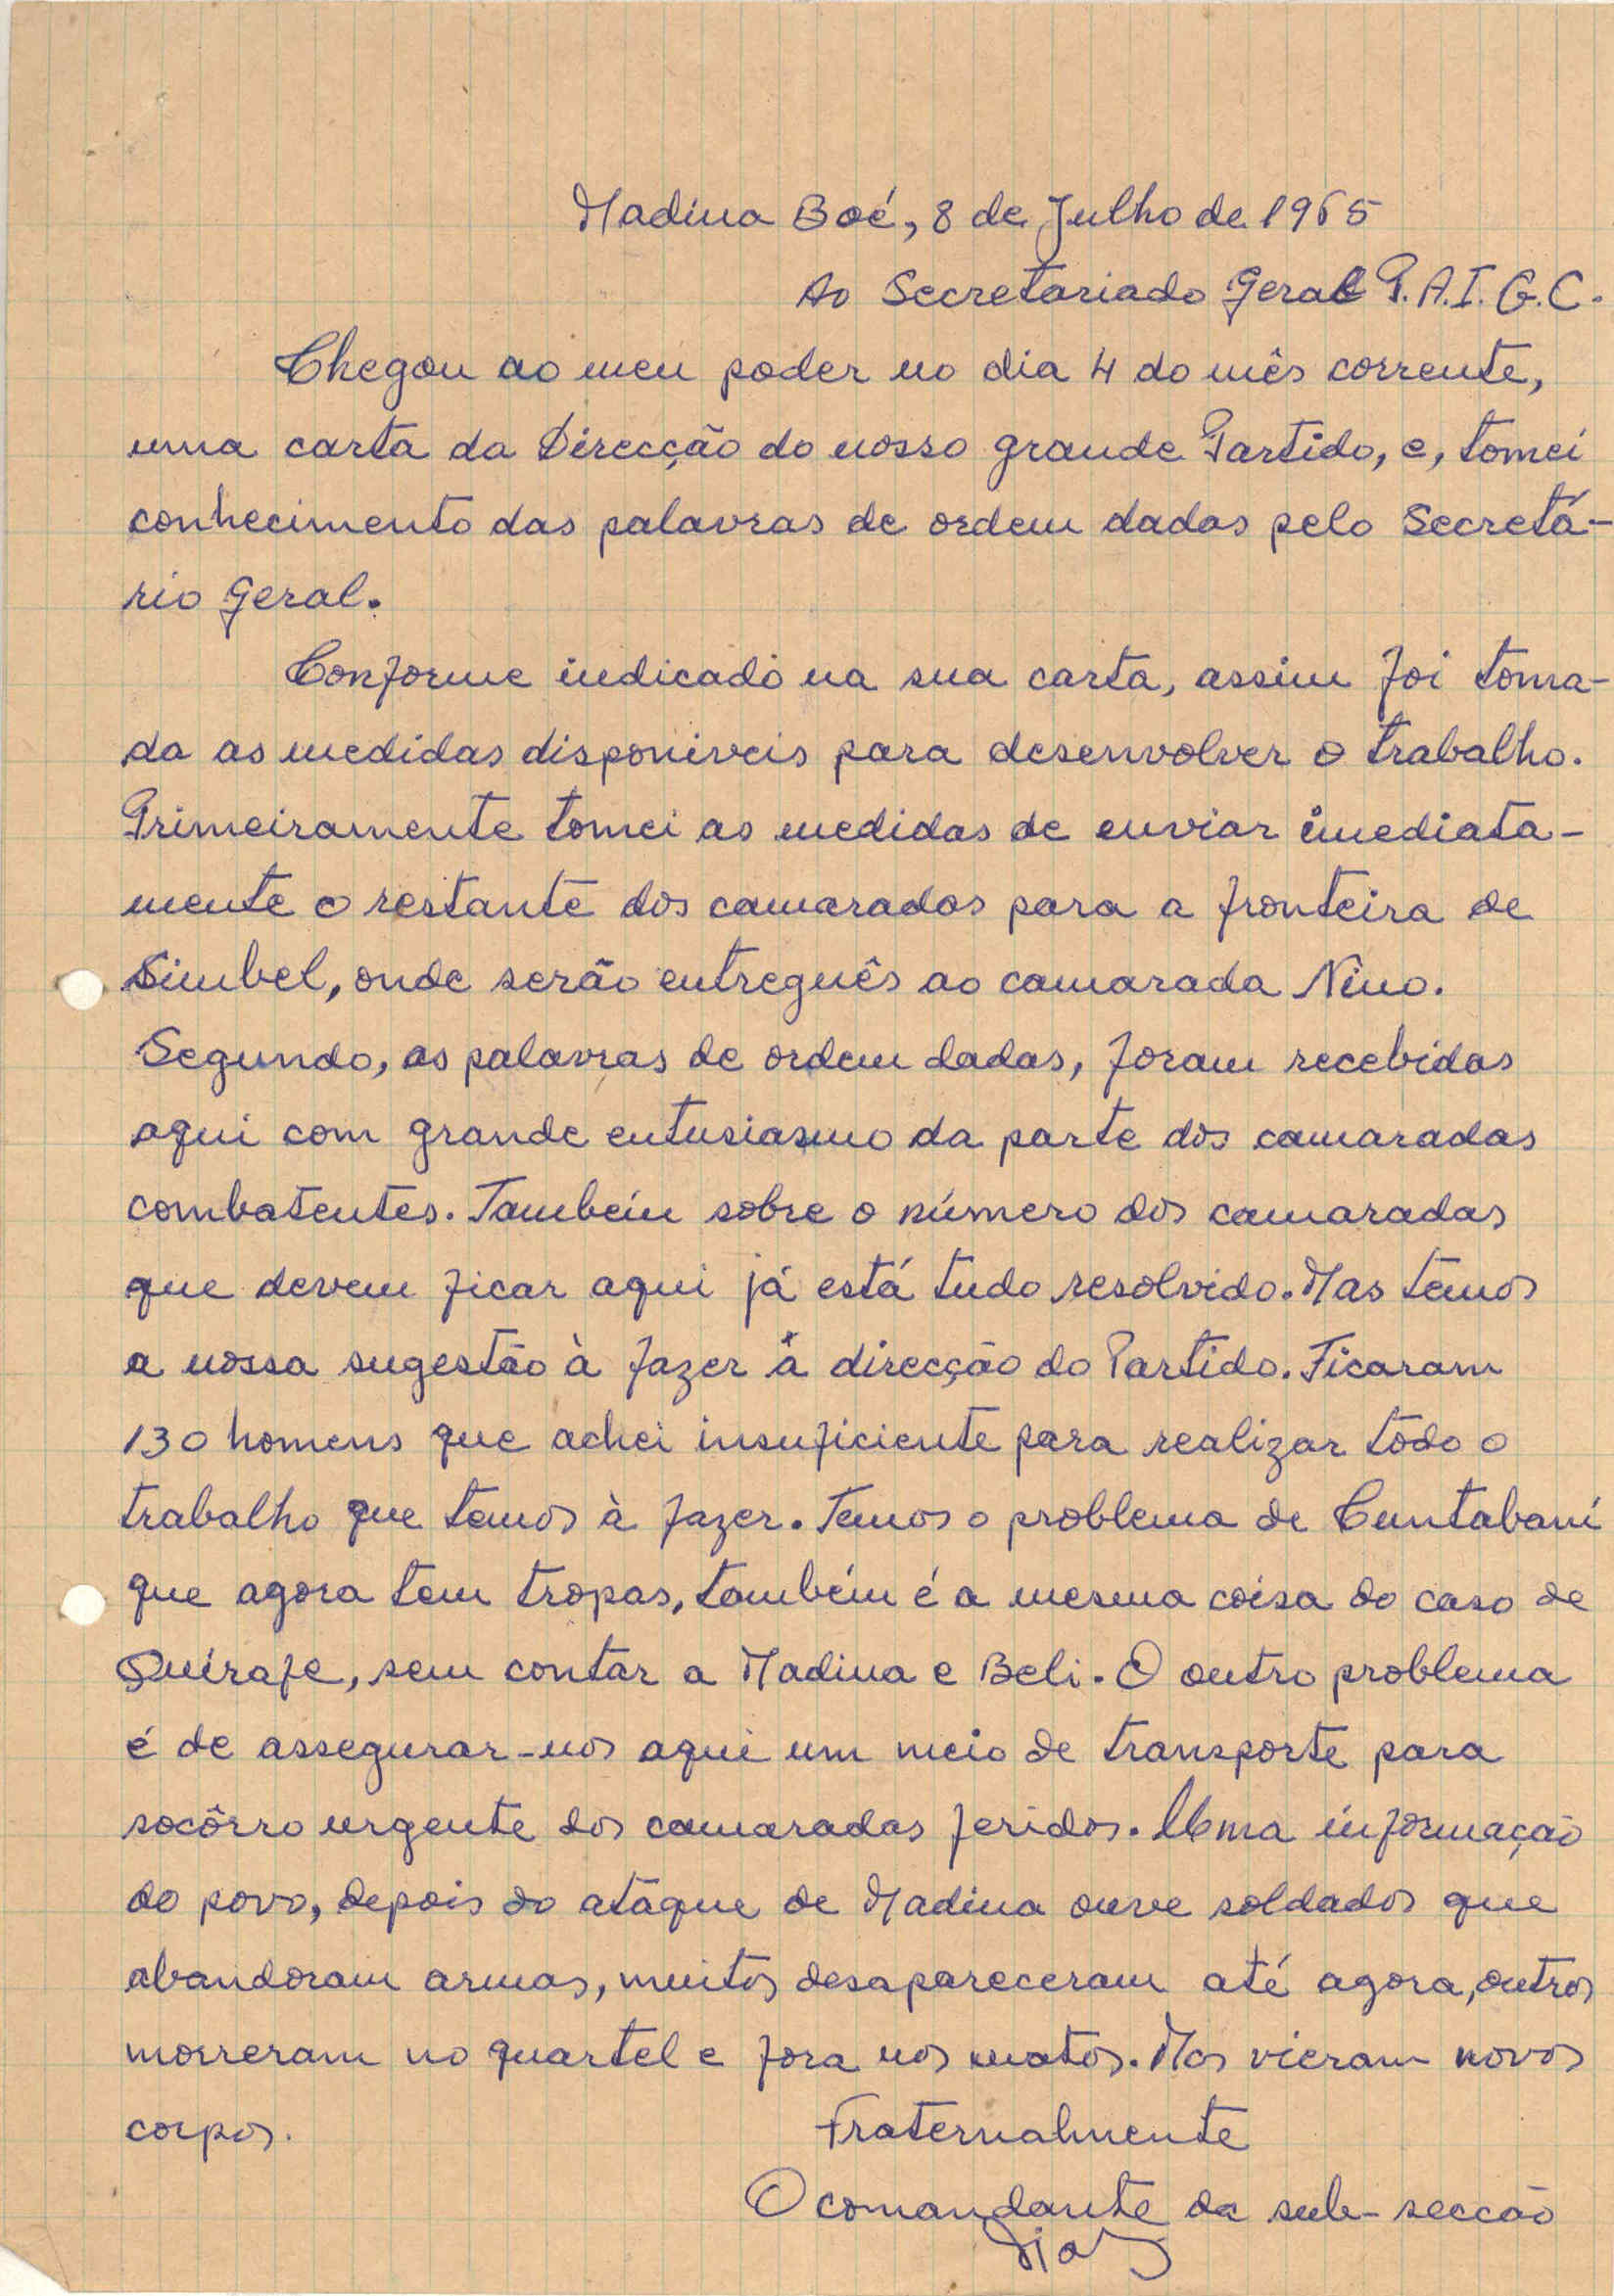 Madina Boé, 8 de Julho de 1965
Ao Secretariado Geral P.A.I.G.C.
Chegou ao meu poder no dia 4 do mês corrente,
uma carta da Direcção do nosso grande Partido, e, tomei
conhecimento das palavras de ordem dadas pelo Secretá-
rio Geral.
Conforme indicado na sua carta, assim foi toma-
da as medidas disponiveis para desenvolver o trabalho.
Primeiramente tomei as medidas de enviar imediata-
mente o restante dos camaradas para a fronteira de
Simbel, onde serão entreguês ao camarada Nino.
Segundo, as palavras de ordem dadas, foram recebidas
aqui com grande entusiasmo da parte dos camaradas
combatentes. Também sobre o número dos camaradas
que devem ficar aqui já está tudo resolvido. Mas temos
a nossa sugestão à fazer à direcção do Partido. Ficaram
130 homens que achei insuficiente para realizar todo o
trabalho que temos à fazer. Temos o problema de Cuntabani
que agora tem tropas, também é a mesma coisa do caso de
Quirafe, sem contar a Madina e Beli. O outro problema
é de assegurar-nos aqui um meio de transporte para
socôrro urgente dos camaradas feridos. Uma informação
do povo, depois do atáque de Madina ouve soldados que
abandoram armas, muitos desapareceram até agora, outros
morreram no quartel e fora nos matos. Mas vieram novos
corpos. Fraternalmente
O comandante da sub-secção